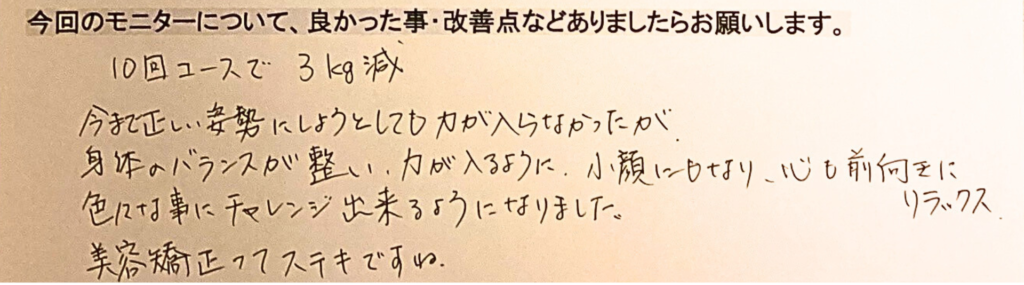 今回のモニターについて、良かった事・改善点などありましたらお願いします。
10回コースで 3kg減
今まで正しい姿勢にしようとしても力が入らなかったが、
身体のバランスが整い、力が入るように、小顔にもなり、心も前向きに
リラックス
色々な事にチャレンジ出来るようになりました。
美容矯正ってステキですね。